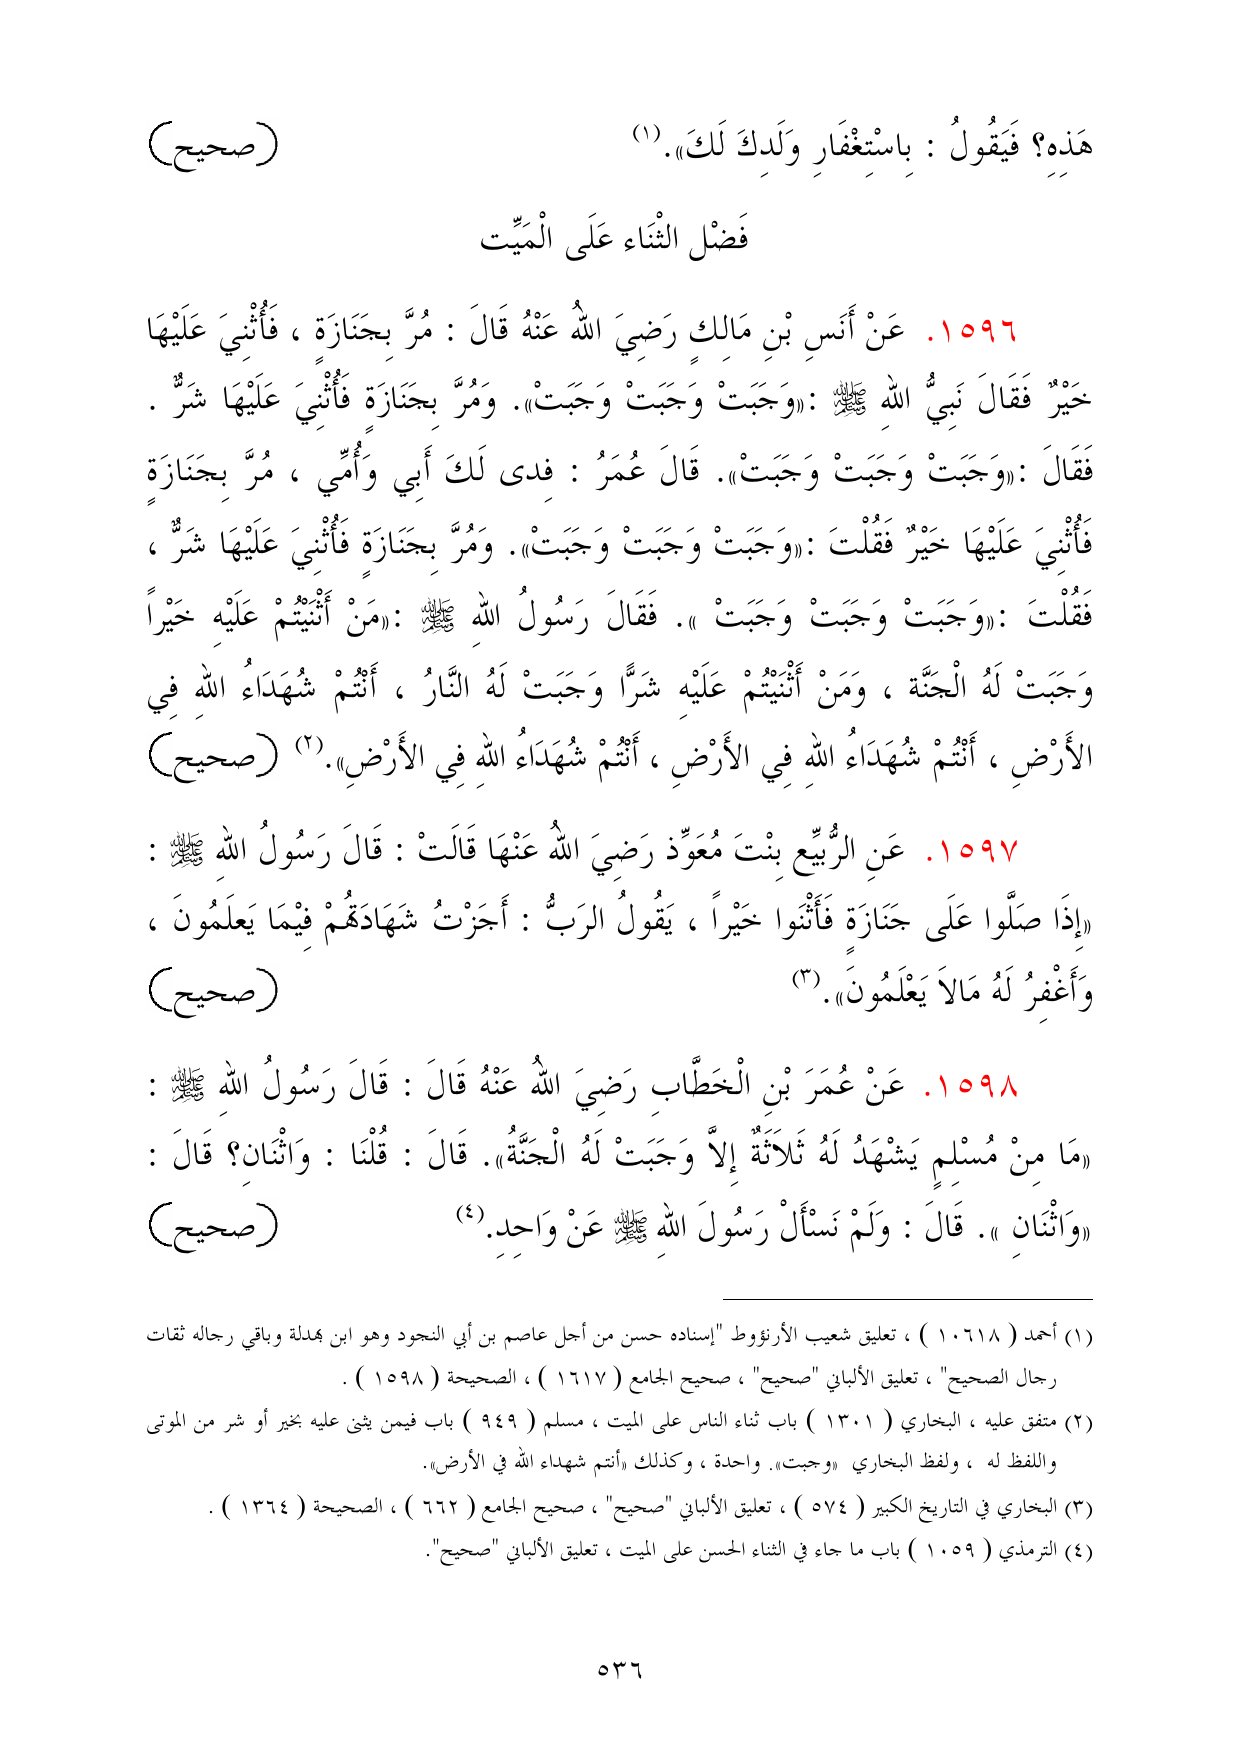 هَذِهِ؟ فَيَقُولُ : بِاسْتِغْفَارِ وَلَدِكَ لَكَ». (١) (صحيح)
فَضْل الثْنَاء عَلَى الْمَيِّت
١٥٩٦. عَنْ أَنَسِ بْنِ مَالِكٍ رَضِيَ اللهُ عَنْهُ قَالَ : مُرَّ بِجَنَازَةٍ ، فَأُثْنِيَ عَلَيْهَا
خَيْرٌ فَقَالَ نَبِيُّ اللهِ ﷺ :«وَجَبَتْ وَجَبَتْ وَجَبَتْ». وَمُرَّ بِجَنَازَةٍ فَأُثْنِيَ عَلَيْهَا شَرٌّ .
فَقَالَ :«وَجَبَتْ وَجَبَتْ وَجَبَتْ». قَالَ عُمَرُ : فِدى لَكَ أَبِي وَأُمِّي ، مُرَّ بِجَنَازَةٍ
فَأُثْنِيَ عَلَيْهَا خَيْرٌ فَقُلْتَ :«وَجَبَتْ وَجَبَتْ وَجَبَتْ». وَمُرَّ بِجَنَازَةٍ فَأُثْنِيَ عَلَيْهَا شَرٌّ ،
فَقُلْتَ :«وَجَبَتْ وَجَبَتْ وَجَبَتْ ». فَقَالَ رَسُولُ اللهِ ﷺ :«مَنْ أَثْنَيْتُمْ عَلَيْهِ خَيْراً
وَجَبَتْ لَهُ الْجَنَّة ، وَمَنْ أَثْنَيْتُمْ عَلَيْهِ شَرًّا وَجَبَتْ لَهُ النَّارُ ، أَنْتُمْ شُهَدَاءُ اللهِ فِي
الأَرْضِ ، أَنْتُمْ شُهَدَاءُ اللهِ فِي الأَرْضِ ، أَنْتُمْ شُهَدَاءُ اللهِ فِي الأَرْضِ». (٢) (صحيح)
١٥٩٧. عَنِ الرُّبَيِّع بِنْتَ مُعَوِّذ رَضِيَ اللهُ عَنْهَا قَالَتْ : قَالَ رَسُولُ اللهِ ﷺ :
«إِذَا صَلَّوا عَلَى جَنَازَةٍ فَأَثْنَوا خَيْراً ، يَقُولُ الرَبُّ : أَجَزْتُ شَهَادَتَهُمْ فِيْمَا يَعلَمُونَ ،
وَأَغْفِرُ لَهُ مَالاَ يَعْلَمُونَ». (٣) (صحيح)
١٥٩٨. عَنْ عُمَرَ بْنِ الْخَطَّابِ رَضِيَ اللهُ عَنْهُ قَالَ : قَالَ رَسُولُ اللهِ ﷺ :
«مَا مِنْ مُسْلِمٍ يَشْهَدُ لَهُ ثَلاَثَةٌ إِلاَّ وَجَبَتْ لَهُ الْجَنَّةُ». قَالَ : قُلْنَا : وَاثْنَانِ؟ قَالَ :
«وَاثْنَانِ ». قَالَ : وَلَمْ نَسْأَلْ رَسُولَ اللهِ ﷺ عَنْ وَاحِدِ. (٤) (صحيح)
(١) أحمد ( ١٠٦١٨ ) ، تعليق شعيب الأرنؤوط "إسناده حسن من أجل عاصم بن أبي النجود وهو ابن بهدلة وباقي رجاله ثقات
رجال الصحيح" ، تعليق الألباني "صحيح" ، صحيح الجامع ( ١٦١٧ ) ، الصحيحة ( ١٥٩٨ ) .
(٢) متفق عليه ، البخاري ( ١٣٠١ ) باب ثناء الناس على الميت ، مسلم ( ٩٤٩ ) باب فيمن يثنى عليه بخير أو شر من الموتى
واللفظ له ، ولفظ البخاري «وجبت». واحدة ، وكذلك «أنتم شهداء الله في الأرض».
(٣) البخاري في التاريخ الكبير ( ٥٧٤ ) ، تعليق الألباني "صحيح" ، صحيح الجامع ( ٦٦٢ ) ، الصحيحة ( ١٣٦٤ ) .
(٤) الترمذي ( ١٠٥٩ ) باب ما جاء في الثناء الحسن على الميت ، تعليق الألباني "صحيح".
٥٣٦